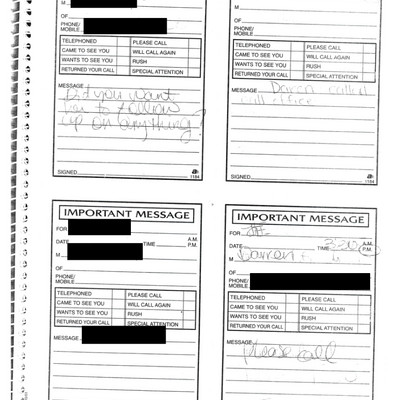 M
OF
PHONE/
MOBILE
TELEPHONED PLEASE CALL
CAME TO SEE YOU WILL CALL AGAIN
WANTS TO SEE YOU RUSH
RETURNED YOUR CALL SPECIAL ATTENTION
MESSAGE
Did you want
me to follow
up on anything?
SIGNED
1184
OF
PHONE/
MOBILE
TELEPHONED PLEASE CALL
CAME TO SEE YOU WILL CALL AGAIN
WANTS TO SEE YOU RUSH
RETURNED YOUR CALL SPECIAL ATTENTION
MESSAGE Darren called
call office
SIGNED
1184
IMPORTANT MESSAGE
FOR
DATE TIME A.M.
P.M.
M
OF
PHONE/
MOBILE
TELEPHONED PLEASE CALL
CAME TO SEE YOU WILL CALL AGAIN
WANTS TO SEE YOU RUSH
RETURNED YOUR CALL SPECIAL ATTENTION
MESSAGE
IMPORTANT MESSAGE
FOR
DATE TIME 3:20 A.M.
P.M.
M Darren
OF
PHONE/
MOBILE
TELEPHONED PLEASE CALL
CAME TO SEE YOU WILL CALL AGAIN
WANTS TO SEE YOU RUSH
RETURNED YOUR CALL SPECIAL ATTENTION
MESSAGE
please call